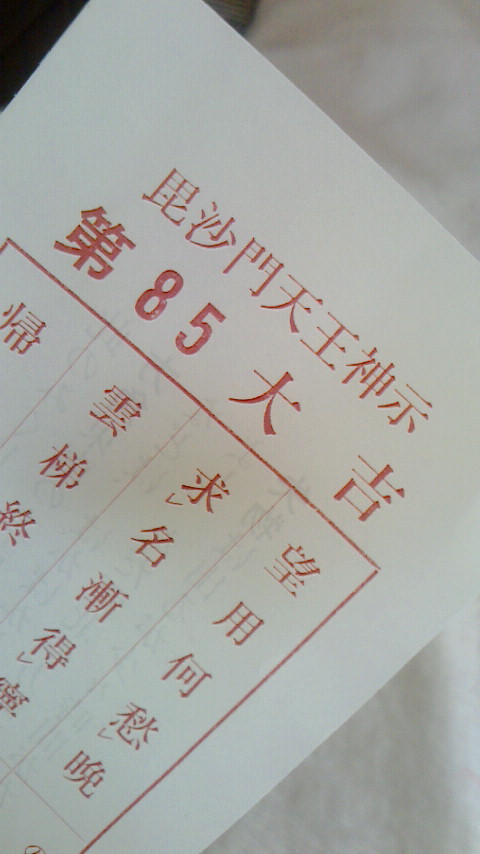 毘沙門天王神示
第85大吉
望用何愁晩
求レ名漸得寧
雲梯終
帰